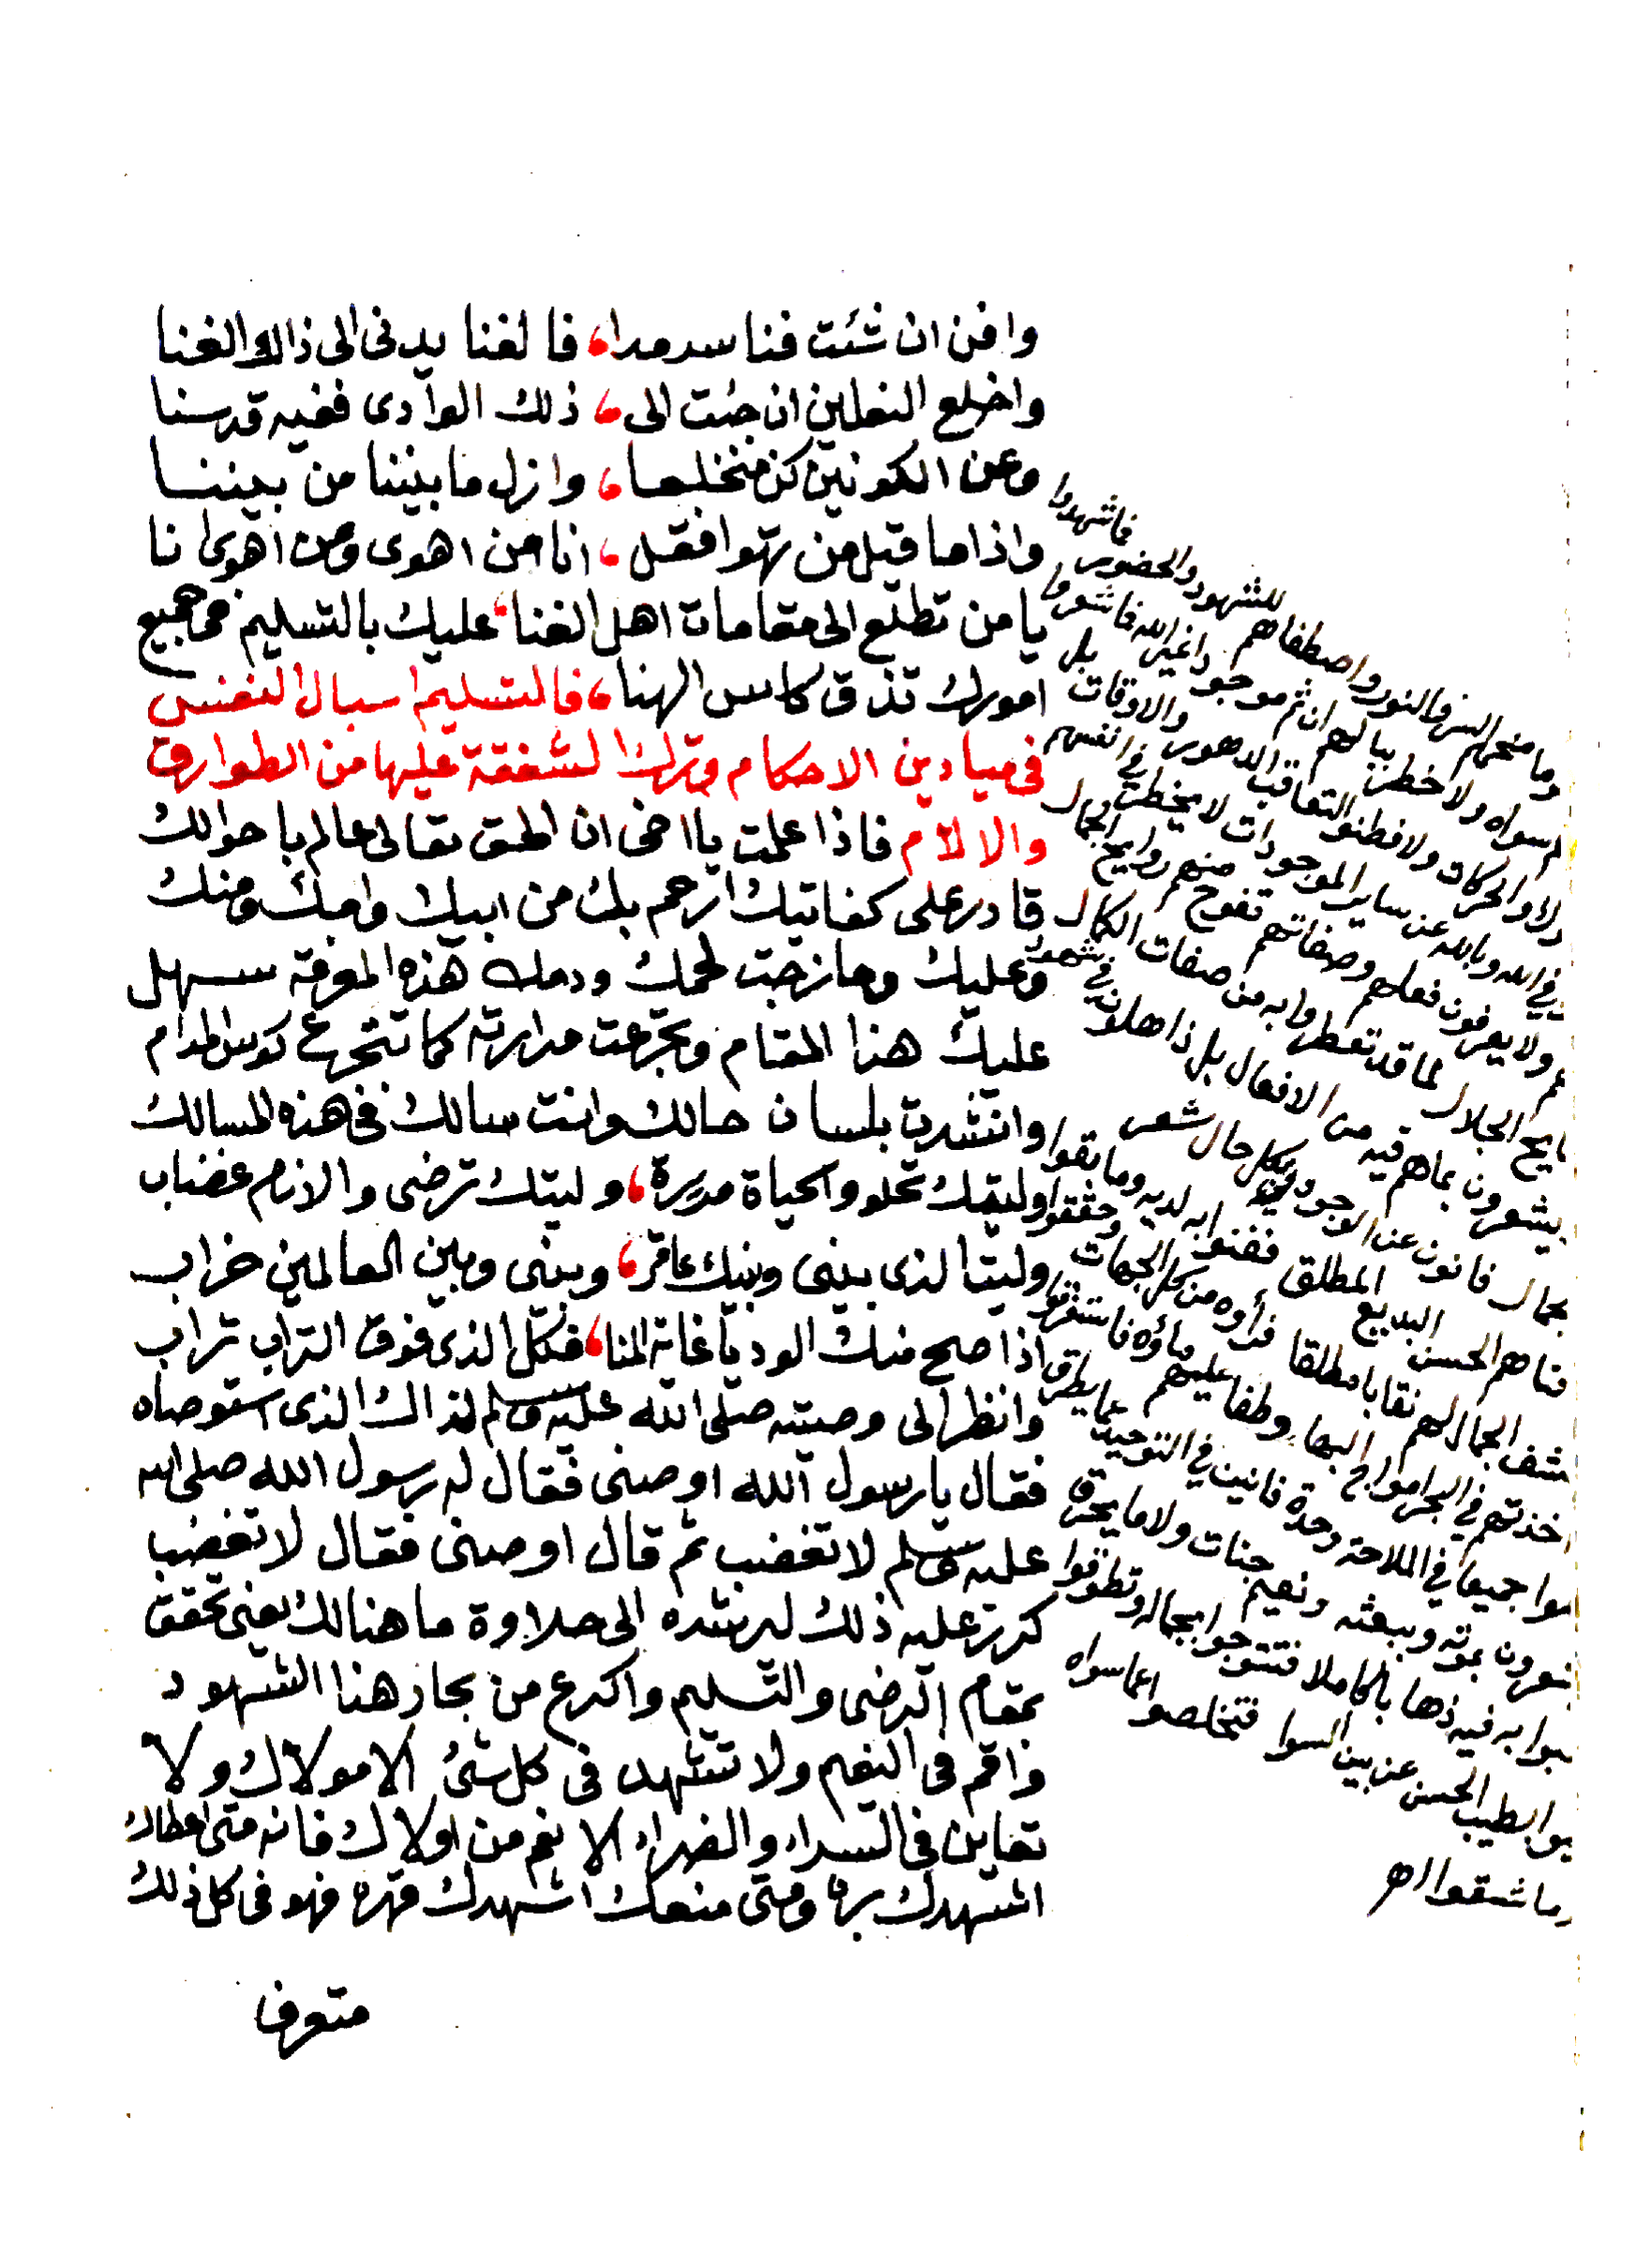 وافن ان شئت فنا سرمدا، فالفنا يدنى الى ذاك الفنا
واخلع النعلين ان جئت الى، ذلك الوادى ففيه قدسنا
وعن الكونين كن منخلعا، وازل ما بيننا من بيننا
واذا ما قيل من تهوا فقل، انا من اهوى ومن اهوى انا
يا من تطلع الى مقامات اهل الفنا، عليك بالتسليم فى جميع
امورك تذق كاس الهنا، فالتسليم اسبال النفس
فى ميادين الاحكام وترك الشفقة عليها من الطوارق
والالام فاذا علمت يا اخى ان الحق تعالى عالم باحوالك
قادر على كفايتك ارحم بك من ابيك وامك ومنك
وعليك ومازجت لحمك ودمك هذه المعرفة سهل
عليك هذا المقام وتجرعت مرارته كما تتجرع كوس المدام
وانتشدت بلسان حالك وانت سالك فى هذه المسالك
وليتك تحلو والحياة مريرة، وليتك ترضى والانام غضاب
وليت الذى بينى وبينك عامر، وبينى وبين العالمين خراب
اذا صح منك الود يا غاية المنا، فكل الذى فوق التراب تراب
وانظر الى وصيته صلى الله عليه وسلم لذاك الذى استوصاه
فقال يا رسول الله اوصنى فقال له رسول الله صلى الله
عليه وسلم لا تغضب ثم قال اوصنى فقال لا تغضب
كرر عليه ذلك ليرشده الى حلاوة ما هنالك يعنى تحقق
بمقام الرضى والتسليم واكرع من بحار هذا الشهود
واقم فى النعيم ولا تشهد فى كل شئ الا مولاك ولا
تعاين فى السراء والضراء الا نعم من اولاك فانه متى اعطاك
اشهدك بره ومتى منعك اشهدك قهره فهو فى كل ذلك
متعرف
فاشهدوا
وما منحهم السر والنور واصطفاهم للشهود والحضور
سواه ولا خطر ببالهم ان ثم موجودا غير الله فاشعروا
ولا والحركات ولا فطنوا لتعاقب الدهور والاوقات بل
فى الله وبالله عن ساير الموجودات لا يخطر فى انفسهم
ولا يعرفون فعلهم وصفاتهم تفوح منهم روايح الجمال
الجلال لما قد تعطروا به من صفات الكمال
يشعرون بما هم فيه من الافعال بل ذاهلون فى شهود
بجمال فانون عن الوجود بكل حال شعر
الحسن البديع المطلق ففنوا به لديه وما بقوا
الجمال لهم نقابا مطلقا فرأوه من كل الجهات وحققوا
اخذتهم فى البحر امواج البها، وطفا عليهم ماؤه فاستغرقوا
جميعا فى الملاحة وحدة فانين فى التوحيد عما يطرق
بموته وببعثه ونعيم جنات ولا ما يحرق
به فيه ذهابا كاملا فتتوجوا بجماله وتطوقوا
الطيب الحسن عن بين السوا فتخلصوا عما سواه